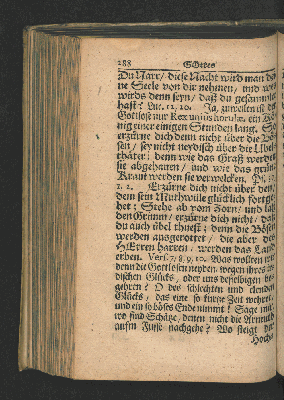 288 GOttes
Du Narr / diese Nacht wird man dei-
ne Seele von dir nehmen / und weß
wirds denn seyn / daß du gesammlet
hast? Luc. 12, 20. Ja, zuweilen ist der
Gottlose nur Rex unius horulæ, ein Kö-
nig einer einigen Stunden lang. So
erzürne dich denn nicht über die Bö-
sen / sey nicht neydisch über die Übel-
thäter: denn wie das Graß werden
sie abgehauen / und wie das grüne
Kraut werden sie verwelcken. Ps. 37,
1. 2. Erzürne dich nicht über den /
dem sein Muthwille glücklich fortge-
het: Stehe ab vom Zorn / und laß
den Grimm / erzürne dich nicht / daß
du auch übel thuest; denn die Bösen
werden ausgerottet / die aber des
HErren harren, werden das Land
erben. Vers. 7/ 8. 9. 10. Was wollten wir
denn die Gottlosen neyden, wegen ihres ir-
dischen Glücks, oder uns desselbigen be-
gehren? O des schlechten und elenden
Glücks, das eine so kurtze Zeit wehret,
und ein so böses Ende nimmt! Sage mir,
wo sind Schätze, denen nicht die Armuth
aufm Fusse nachgehe? Wo steiget die
Hoch-